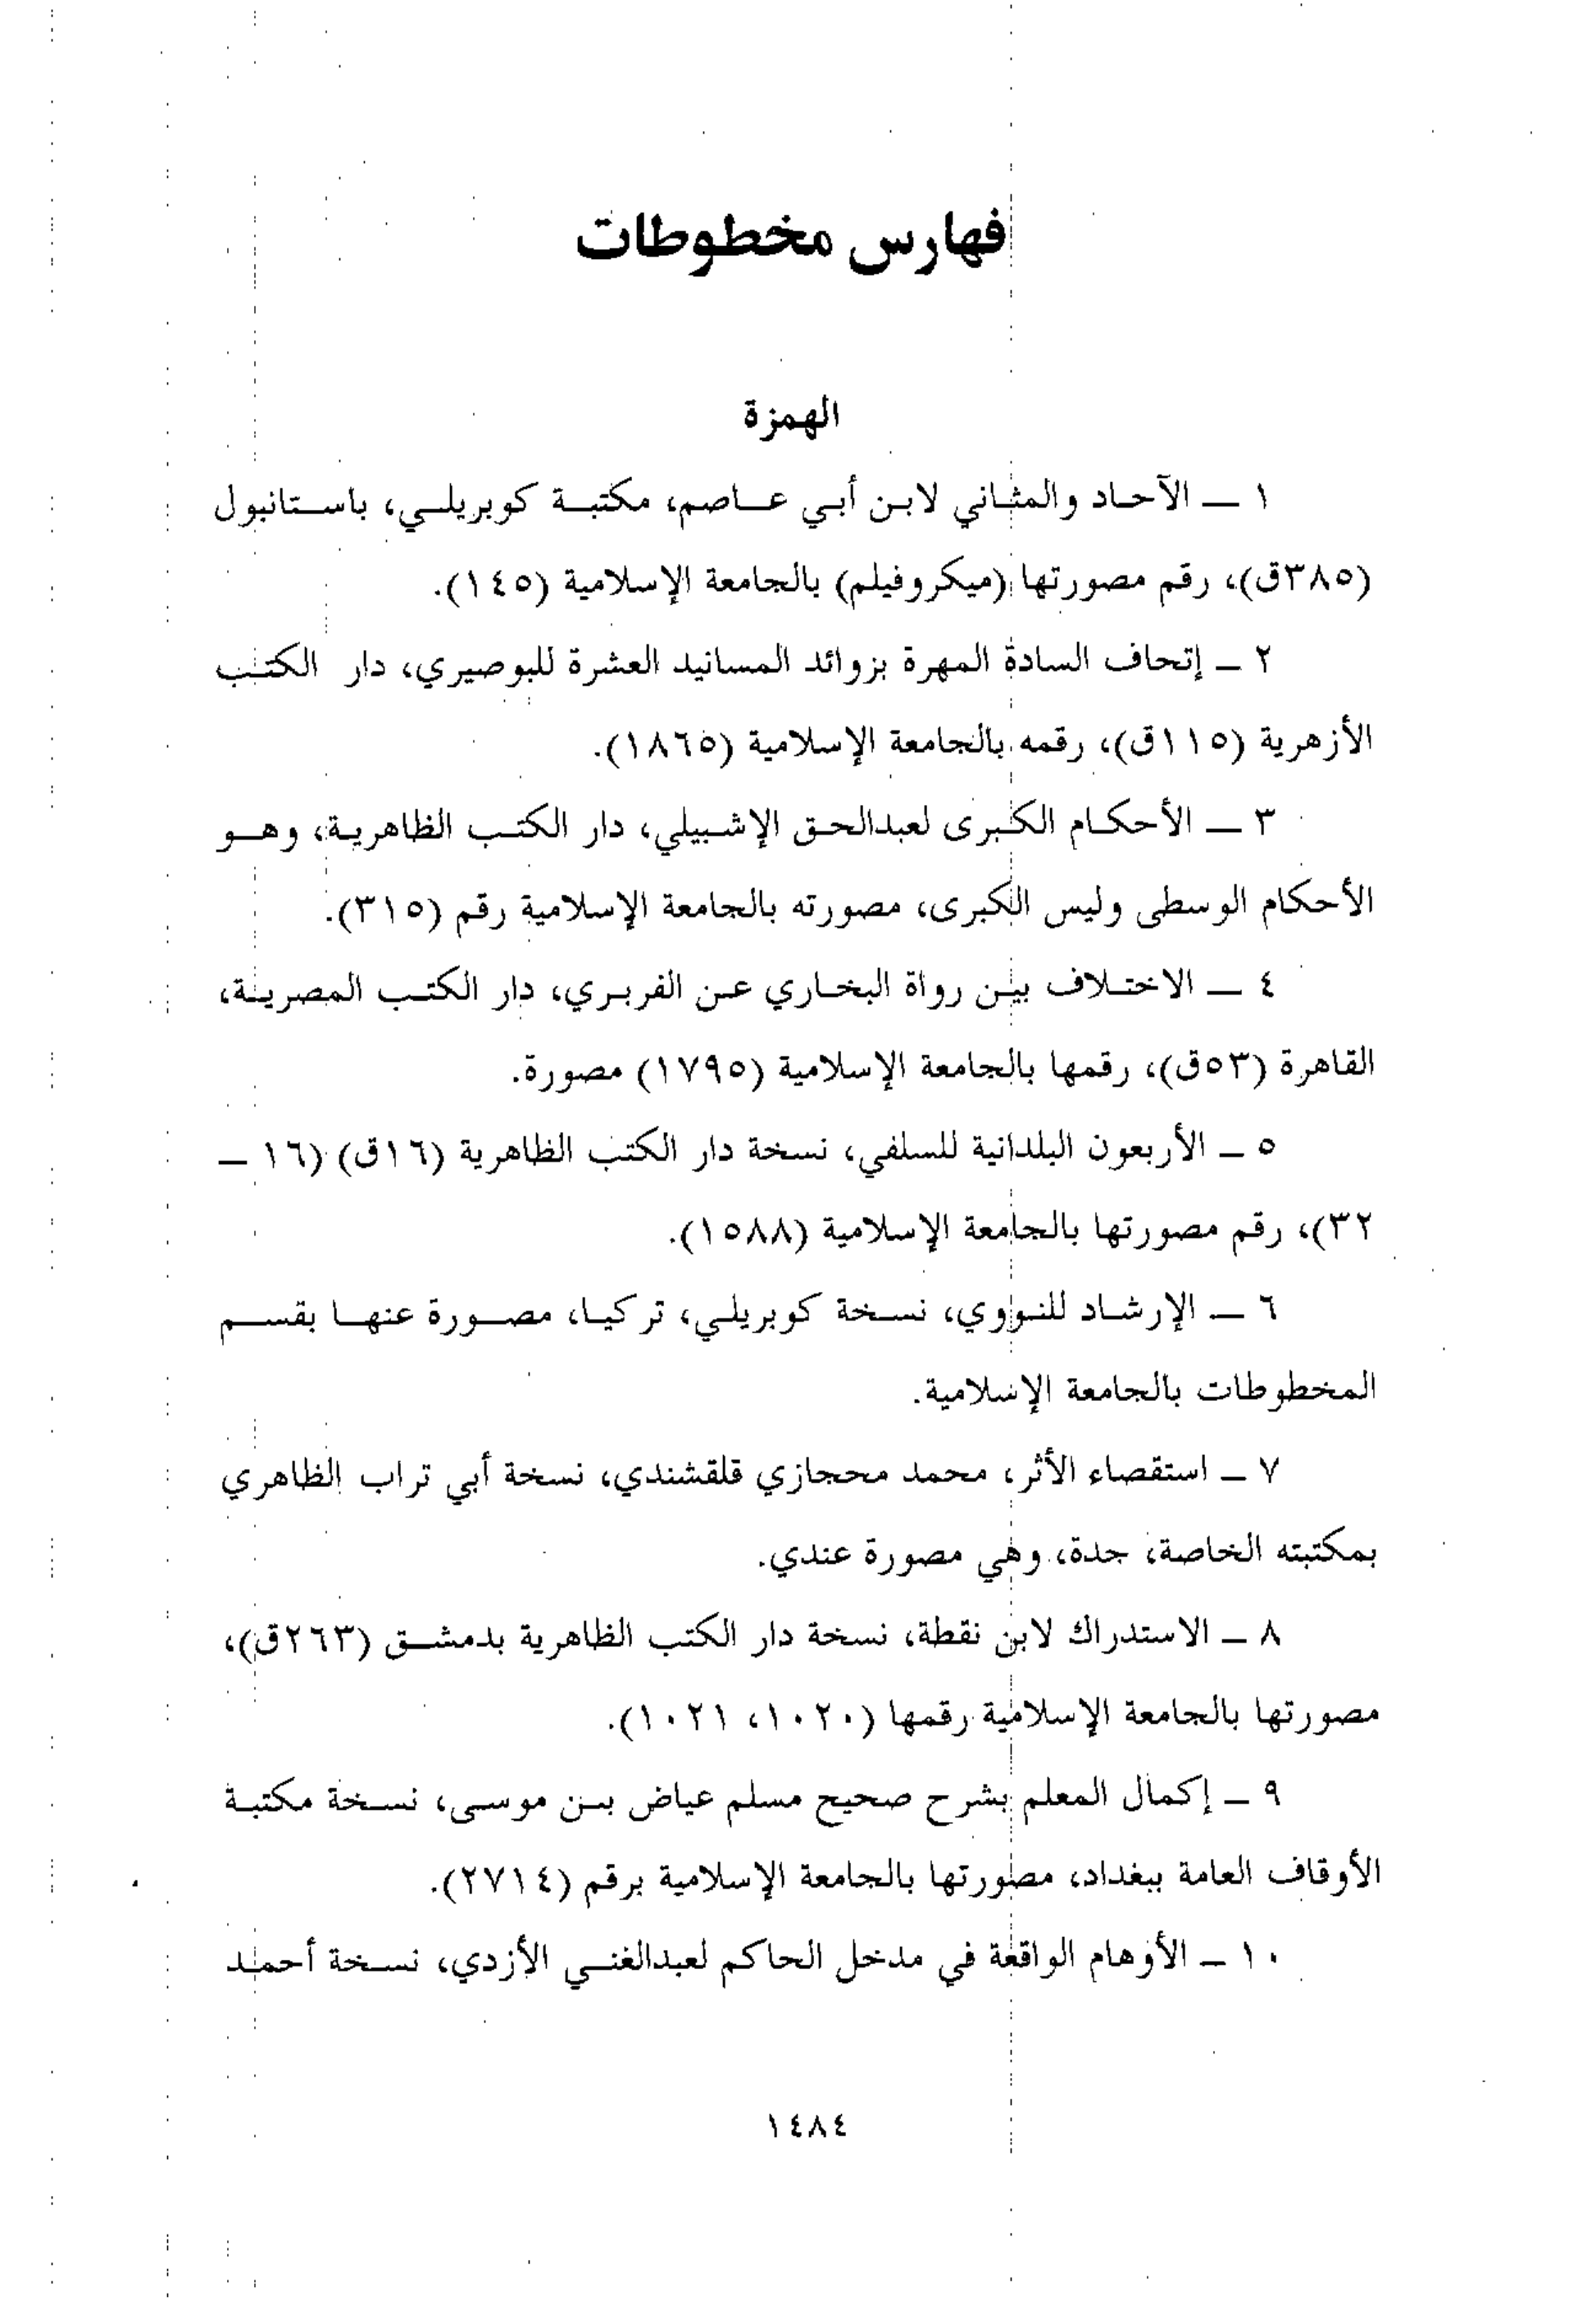 فهارس مخطوطات
الهمزة
١ ــ الآحاد والمثاني لابن أبي عاصم، مكتبة كوبريلي، باستانبول
(٣٨٥ق)، رقم مصورتها (ميكروفيلم) بالجامعة الإسلامية (١٤٥).
٢ ــ إتحاف السادة المهرة بزوائد المسانيد العشرة للبوصيري، دار الكتب
الأزهرية (١١٥ق)، رقمه بالجامعة الإسلامية (١٨٦٥).
٣ ــ الأحكام الكبرى لعبدالحق الإشبيلي، دار الكتب الظاهرية، وهو
الأحكام الوسطى وليس الكبرى، مصورته بالجامعة الإسلامية رقم (٣١٥).
٤ ــ الاختلاف بين رواة البخاري عن الفربري، دار الكتب المصرية،
القاهرة (٥٣ق)، رقمها بالجامعة الإسلامية (١٧٩٥) مصورة.
٥ ــ الأربعون البلدانية للسلفي، نسخة دار الكتب الظاهرية (١٦ق) (١٦ ــ
٣٢)، رقم مصورتها بالجامعة الإسلامية (١٥٨٨).
٦ ــ الإرشاد للنووي، نسخة كوبريلي، تركيا، مصورة عنها بقسم
المخطوطات بالجامعة الإسلامية.
٧ ــ استقصاء الأثر، محمد محجازي قلقشندي، نسخة أبي تراب الظاهري
بمكتبته الخاصة، جدة، وهي مصورة عندي.
٨ ــ الاستدراك لابن نقطة، نسخة دار الكتب الظاهرية بدمشق (٢٦٣ق)،
مصورتها بالجامعة الإسلامية رقمها (١٠٢٠، ١٠٢١).
٩ ــ إكمال المعلم بشرح صحيح مسلم عياض بن موسى، نسخة مكتبة
الأوقاف العامة ببغداد، مصورتها بالجامعة الإسلامية برقم (٢٧١٤).
١٠ ــ الأوهام الواقعة في مدخل الحاكم لعبدالغني الأزدي، نسخة أحمد
١٤٨٤